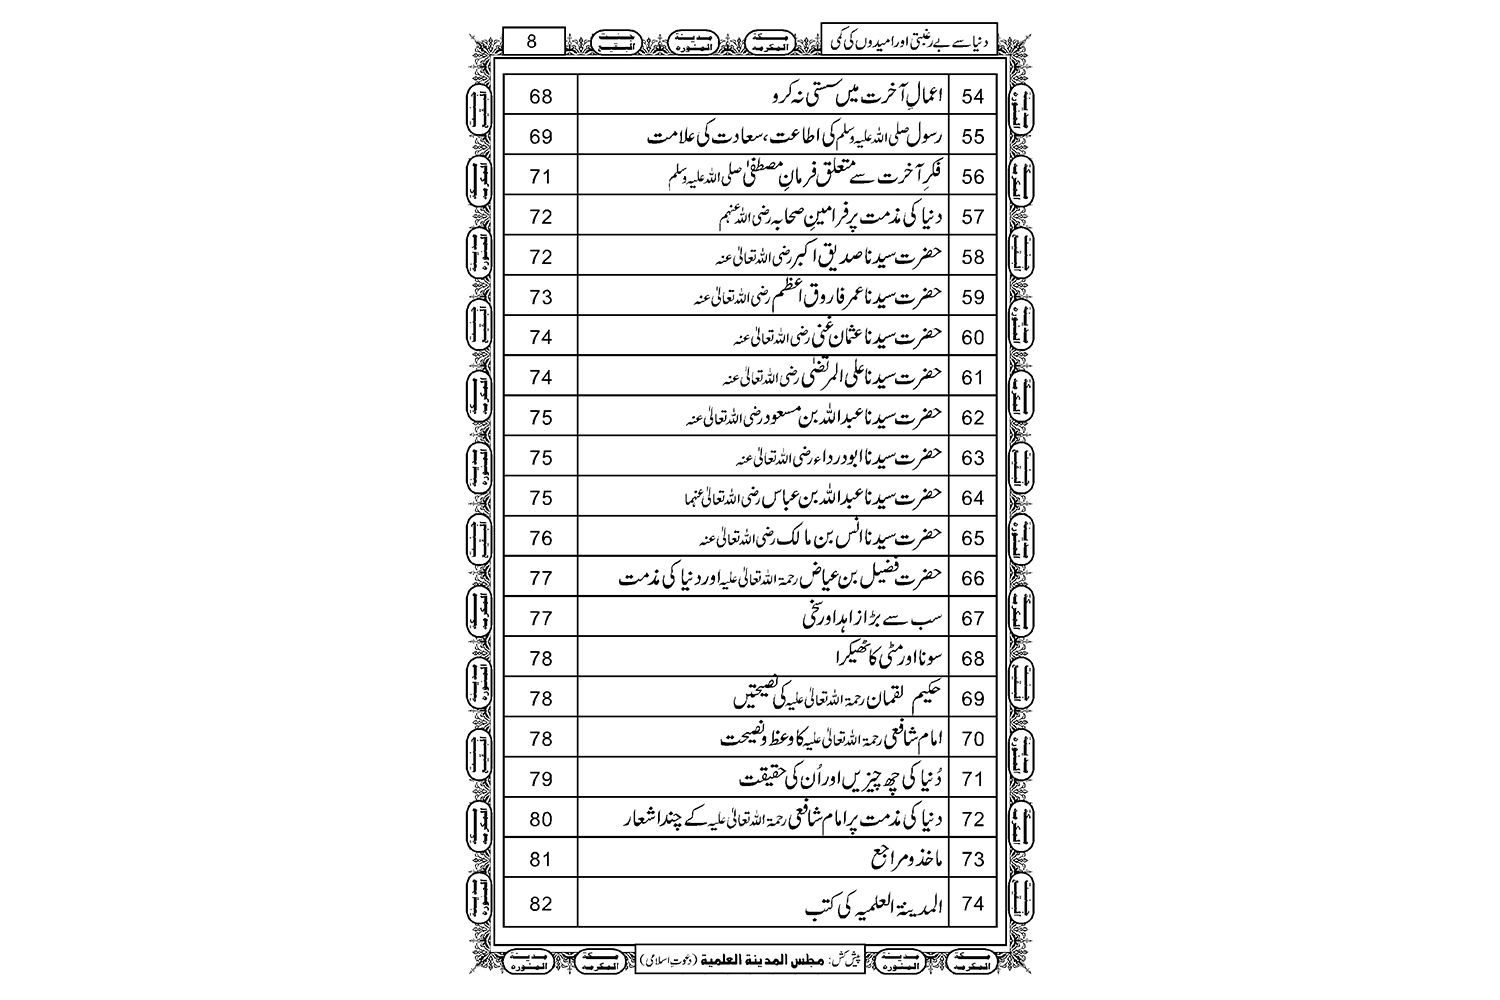 دنیا سے بے رغبتی اور امیدوں کی کمی
مكة المكرمه
مدينة المنوره
جنت البقيع
8
54 اعمالِ آخرت میں سستی نہ کرو 68
55 رسول صلی اللہ علیہ وسلم کی اطاعت، سعادت کی علامت 69
56 فکرِ آخرت سے متعلق فرمانِ مصطفیٰ صلی اللہ علیہ وسلم 71
57 دنیا کی مذمت پر فرامینِ صحابہ رضی اللہ عنہم 72
58 حضرت سیدنا صدیق اکبر رضی اللہ تعالیٰ عنہ 72
59 حضرت سیدنا عمر فاروق اعظم رضی اللہ تعالیٰ عنہ 73
60 حضرت سیدنا عثمان غنی رضی اللہ تعالیٰ عنہ 74
61 حضرت سیدنا علی المرتضیٰ رضی اللہ تعالیٰ عنہ 74
62 حضرت سیدنا عبداللہ بن مسعود رضی اللہ تعالیٰ عنہ 75
63 حضرت سیدنا ابودرداء رضی اللہ تعالیٰ عنہ 75
64 حضرت سیدنا عبداللہ بن عباس رضی اللہ تعالیٰ عنہما 75
65 حضرت سیدنا انس بن مالک رضی اللہ تعالیٰ عنہ 76
66 حضرت فضیل بن عیاض رحمۃ اللہ تعالیٰ علیہ اور دنیا کی مذمت 77
67 سب سے بڑا زاہد اور سخی 77
68 سونا اور مٹی کا ٹھیکرا 78
69 حکیم لقمان رحمۃ اللہ تعالیٰ علیہ کی نصیحتیں 78
70 امام شافعی رحمۃ اللہ تعالیٰ علیہ کا وعظ و نصیحت 78
71 دُنیا کی چھ چیزیں اور اُن کی حقیقت 79
72 دنیا کی مذمت پر امام شافعی رحمۃ اللہ تعالیٰ علیہ کے چند اشعار 80
73 ماخذ و مراجع 81
74 المدینۃ العلمیہ کی کتب 82
مكة المكرمه
مدينة المنوره
پیش کش: مجلس المدينة العلمية (دعوتِ اسلامی)
مكة المكرمه
مدينة المنوره